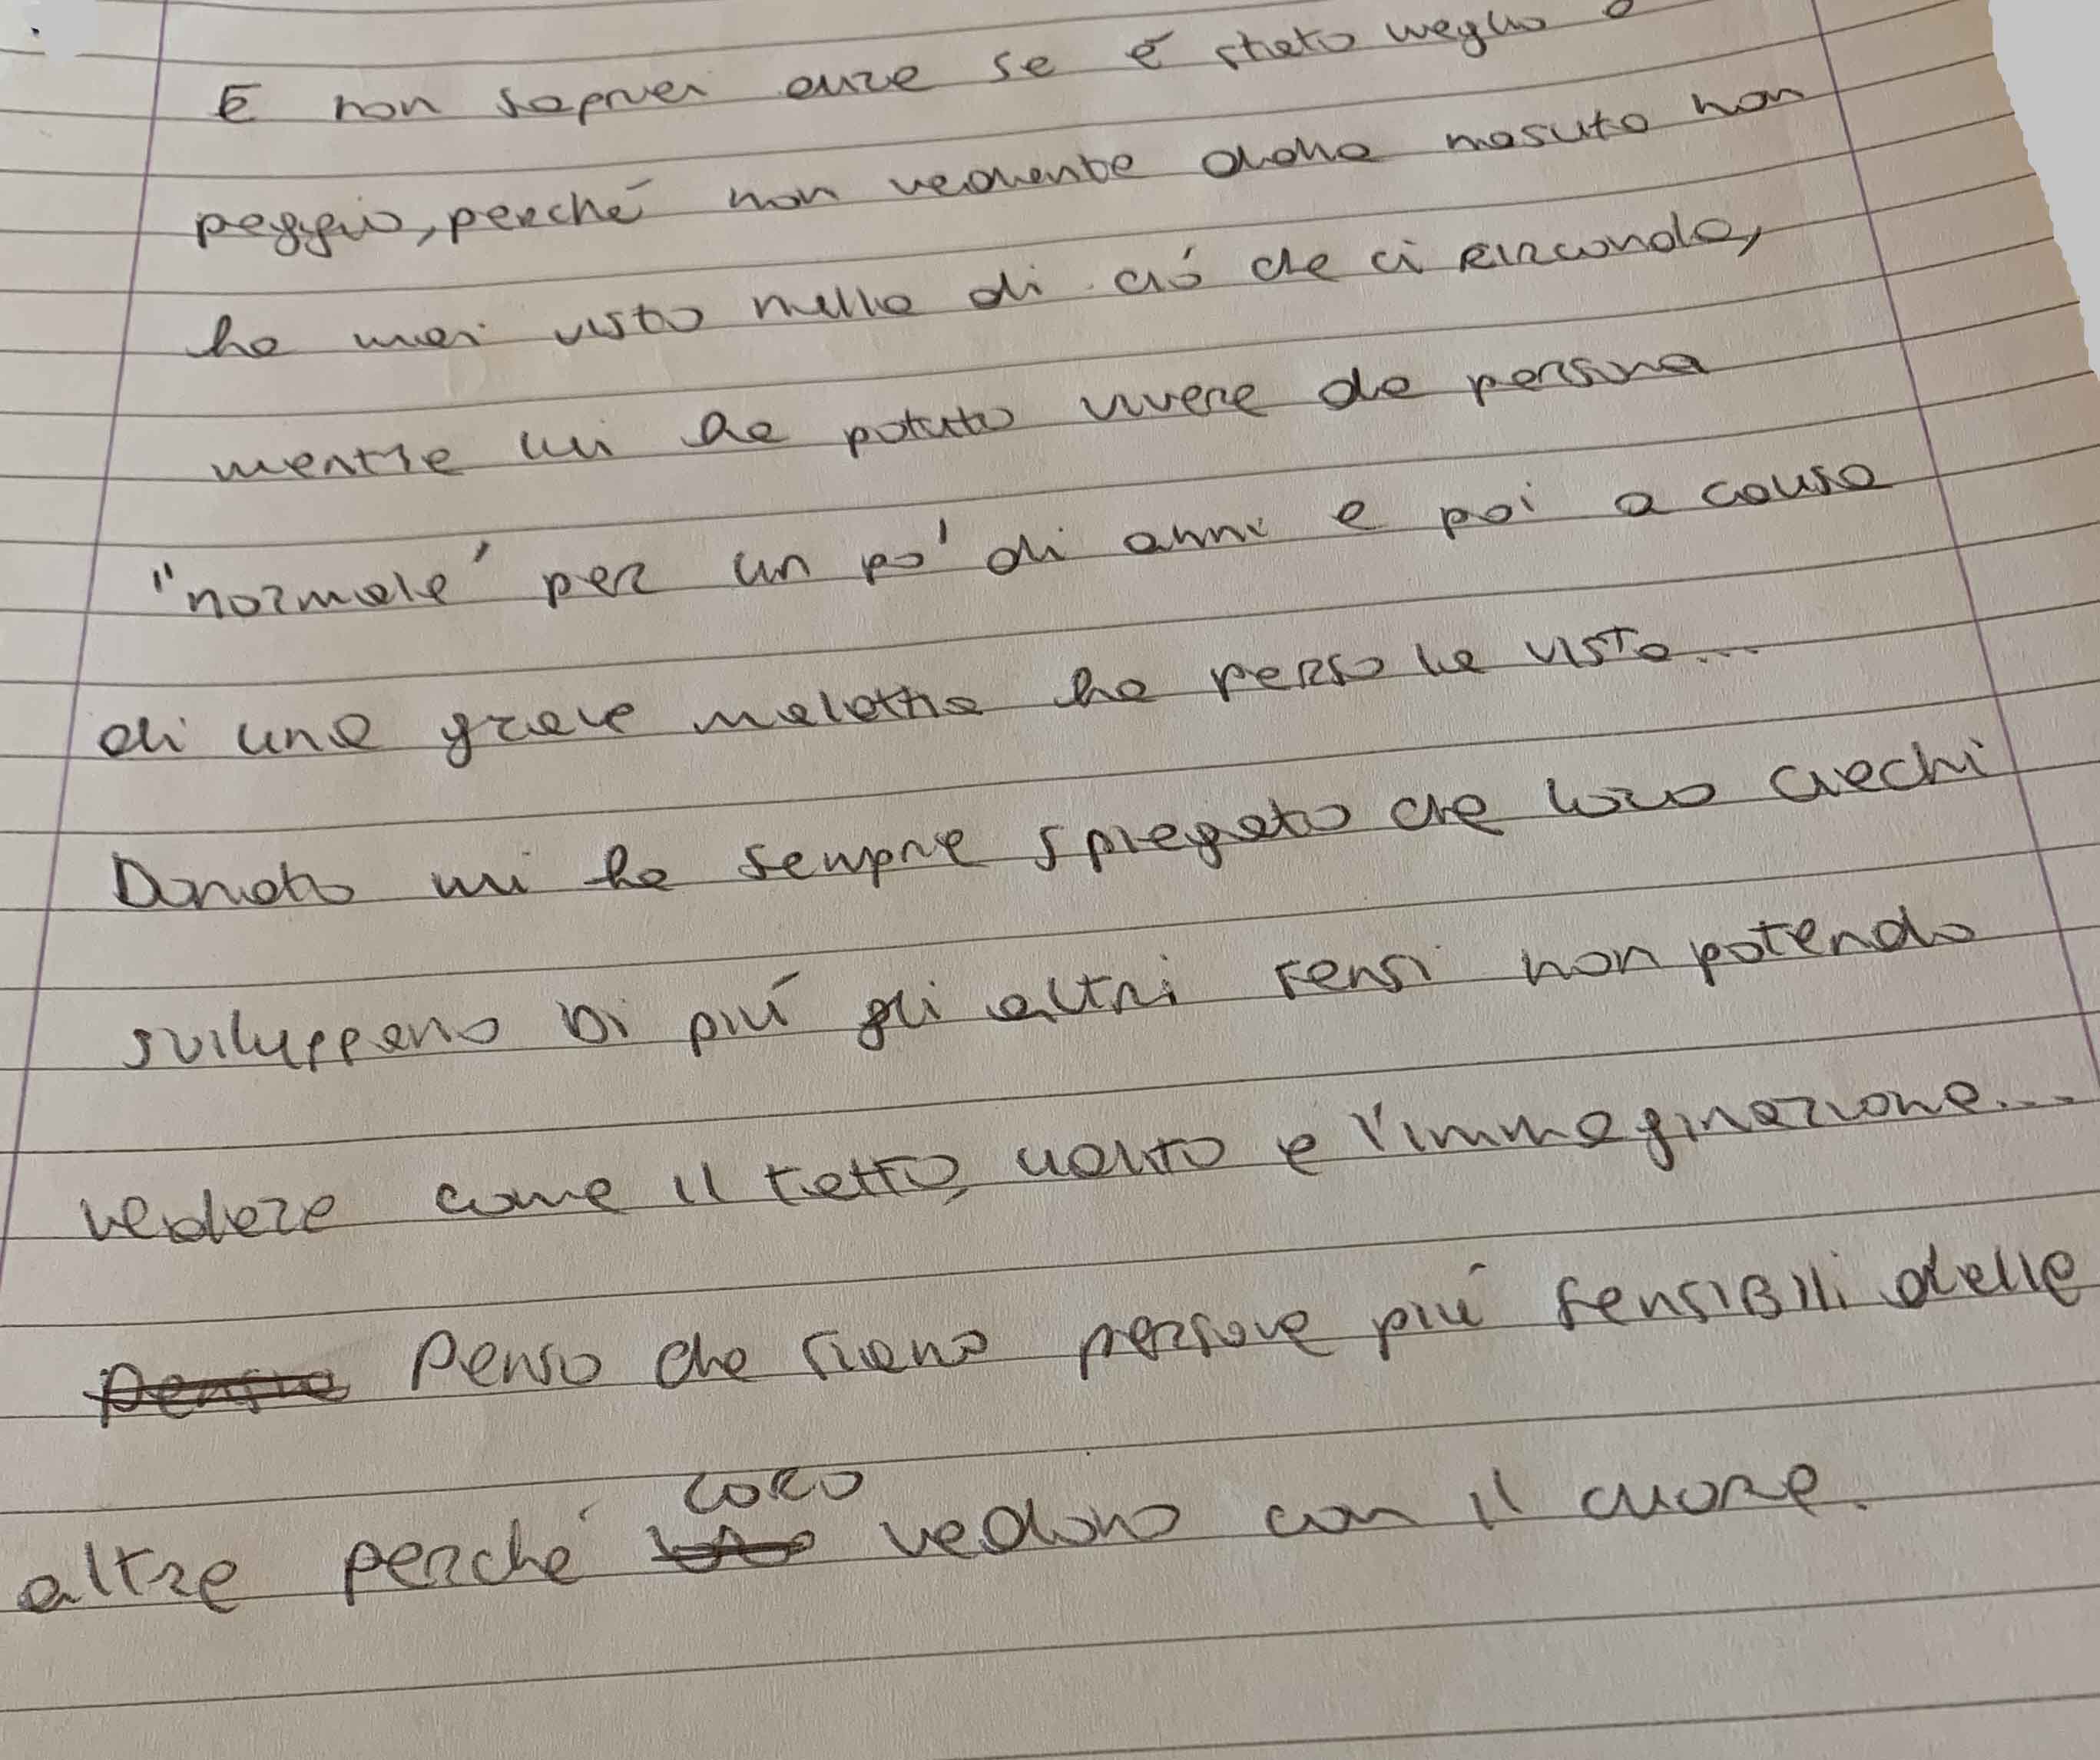 E non saprei anze se é stato meglio o
peggio, perché non vedente dalla nascita non
ha mai visto nulla di ció che ci circonda,
mentre lui ha potuto vivere da persona
"normale" per un po' di anni e poi a causa
di una grave malattia ha perso la vista...
Donato mi ha sempre spiegato che loro ciechi
sviluppano di piú gli altri sensi non potendo
vedere come il tatto, udito e l'immaginazione...
Penso che siano persone piú sensibili delle
altre perché loro vedono con il cuore.